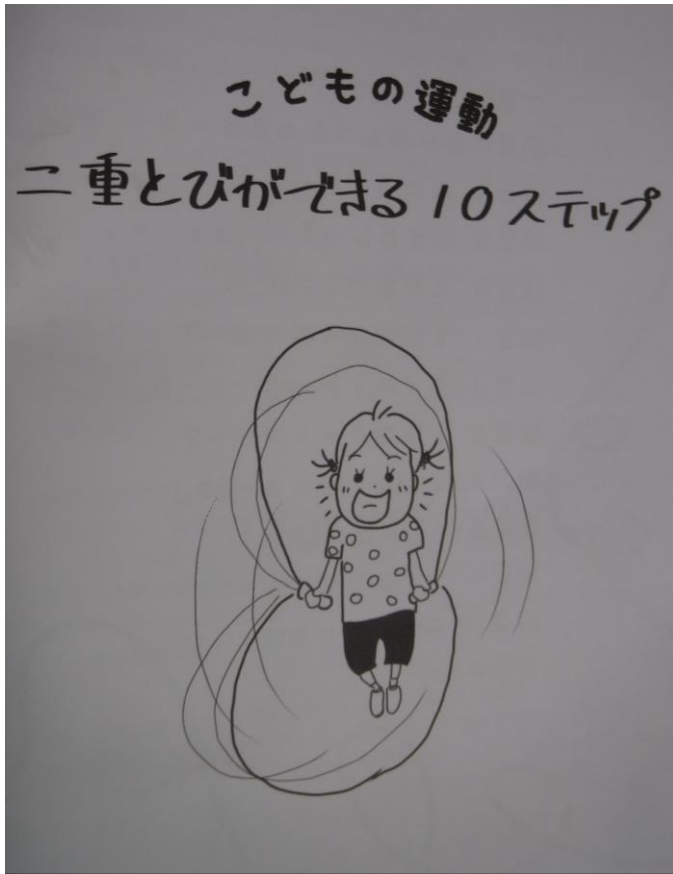 こどもの運動
二重とびができる10ステップ